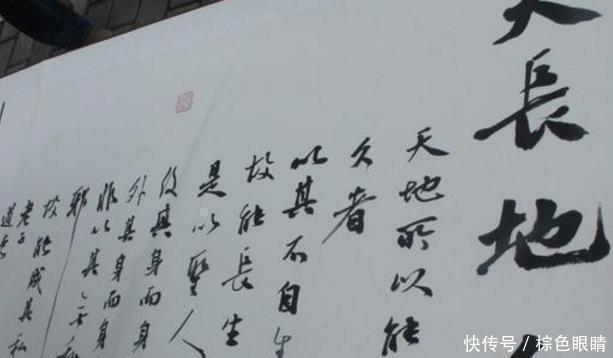 天長地
天地所以能
久者
以其不自生
故能長生
是以聖人
後其身而身
外其身而身
非以其無私
邪
故能成其私
老子
道
快传号 / 棕色眼睛